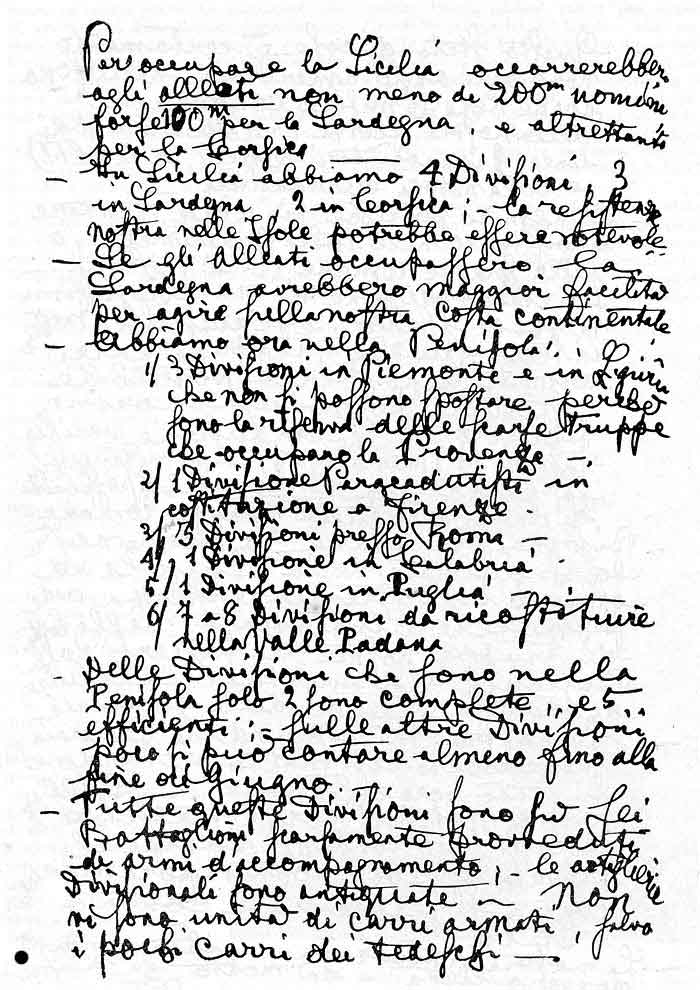 Per occupare la Sicilia occorrerebbero
agli alleati non meno di 200m uomini
forse 100m per la Sardegna, e altrettanti
per la Corsica
– In Sicilia abbiamo 4 Divisioni, 3
in Sardegna 2 in Corsica; – la resistenza
nostra nelle Isole potrebbe essere notevole –
– Se gli Alleati occupassero la
Sardegna avrebbero maggiori facilità
per agire sulla nostra Costa continentale
– Abbiamo ora nella Penisola:
1/ 3 Divisioni in Piemonte e in Liguria
che non si possono spostare perché
sono la riserva delle scarse truppe
che occupano la Provenza –
2/ 1 Divisione Paracadutisti in
costituzione a Firenze –
3/ 3 Divisioni presso Roma –
4/ 1 Divisione in Calabria –
5/ 1 Divisione in Puglia –
6/ 7 a 8 Divisioni da ricostituire
nella Valle Padana
– Delle Divisioni che sono nella
Penisola solo 2 sono complete, e 5
efficienti; – sulle altre Divisioni
poco si può contare almeno fino alla
fine di Giugno
– Tutte queste Divisioni sono su sei
Battaglioni scarsamente provveduti
di armi d'accompagnamento; – le artiglierie
Divisionali sono antiquate – Non
vi sono unità di carri armati, salvo
i pochi carri dei tedeschi –